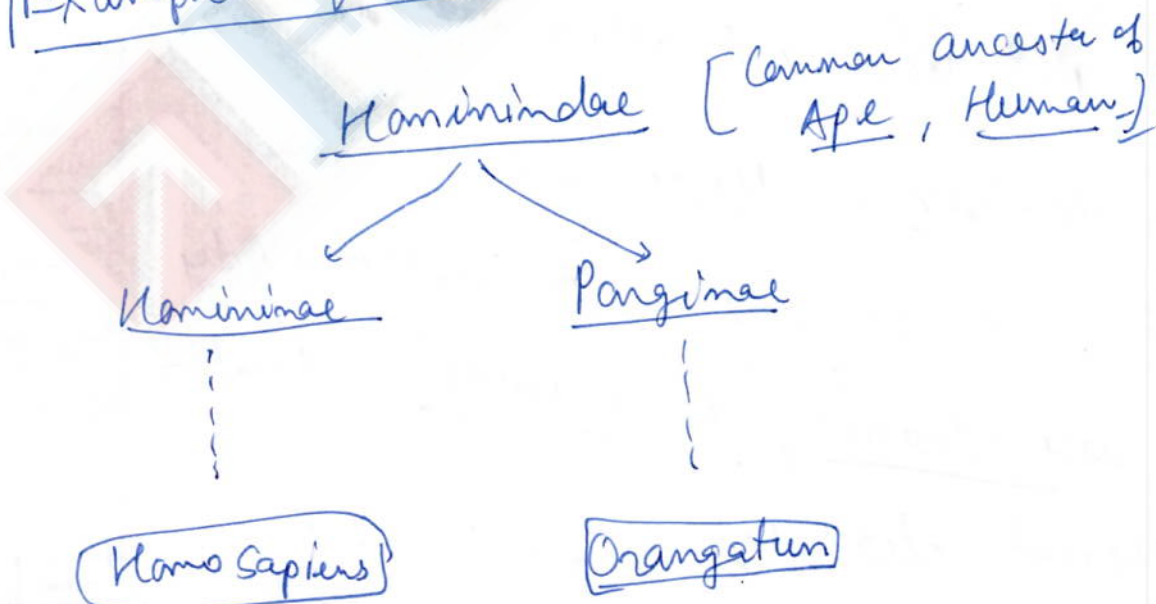 Example
Haminindae [Common ancester of
Ape, Human]
Haminimae Ponginae
Homo Sapiens Orangatun